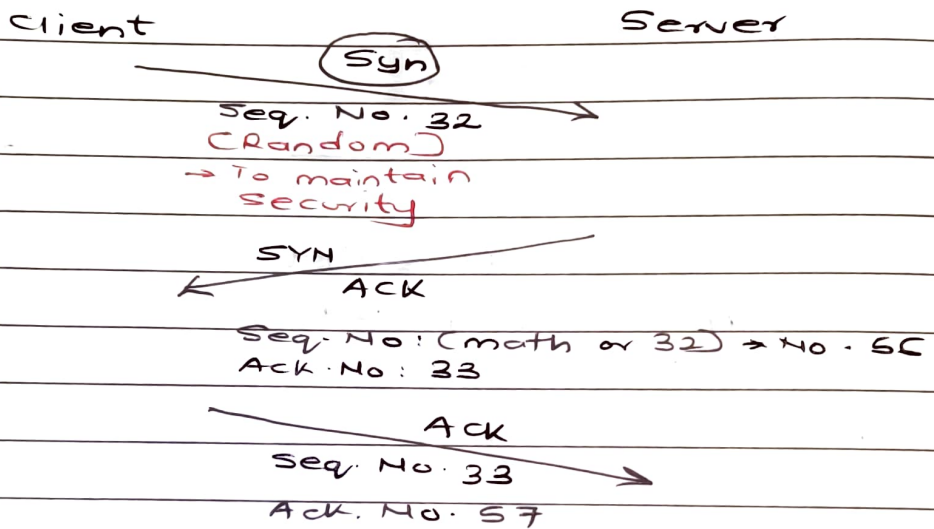 Client Server
Syn
Seq. No. 32
(Random)
→ To maintain
security
SYN
ACK
Seq. No: (math or 32) → No. 56
Ack. No: 33
ACK
Seq. No. 33
Ack. No. 57